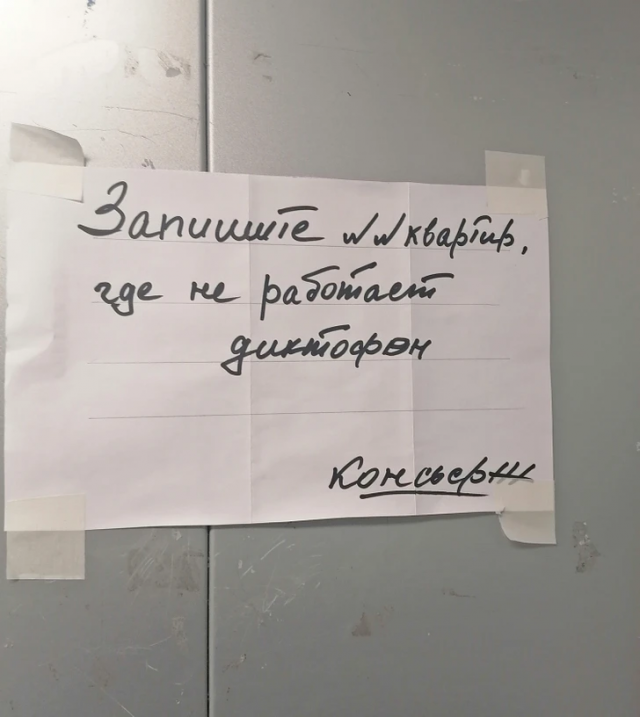 Запишите №№ квартир,
где не работает
диктофон
Консьерж